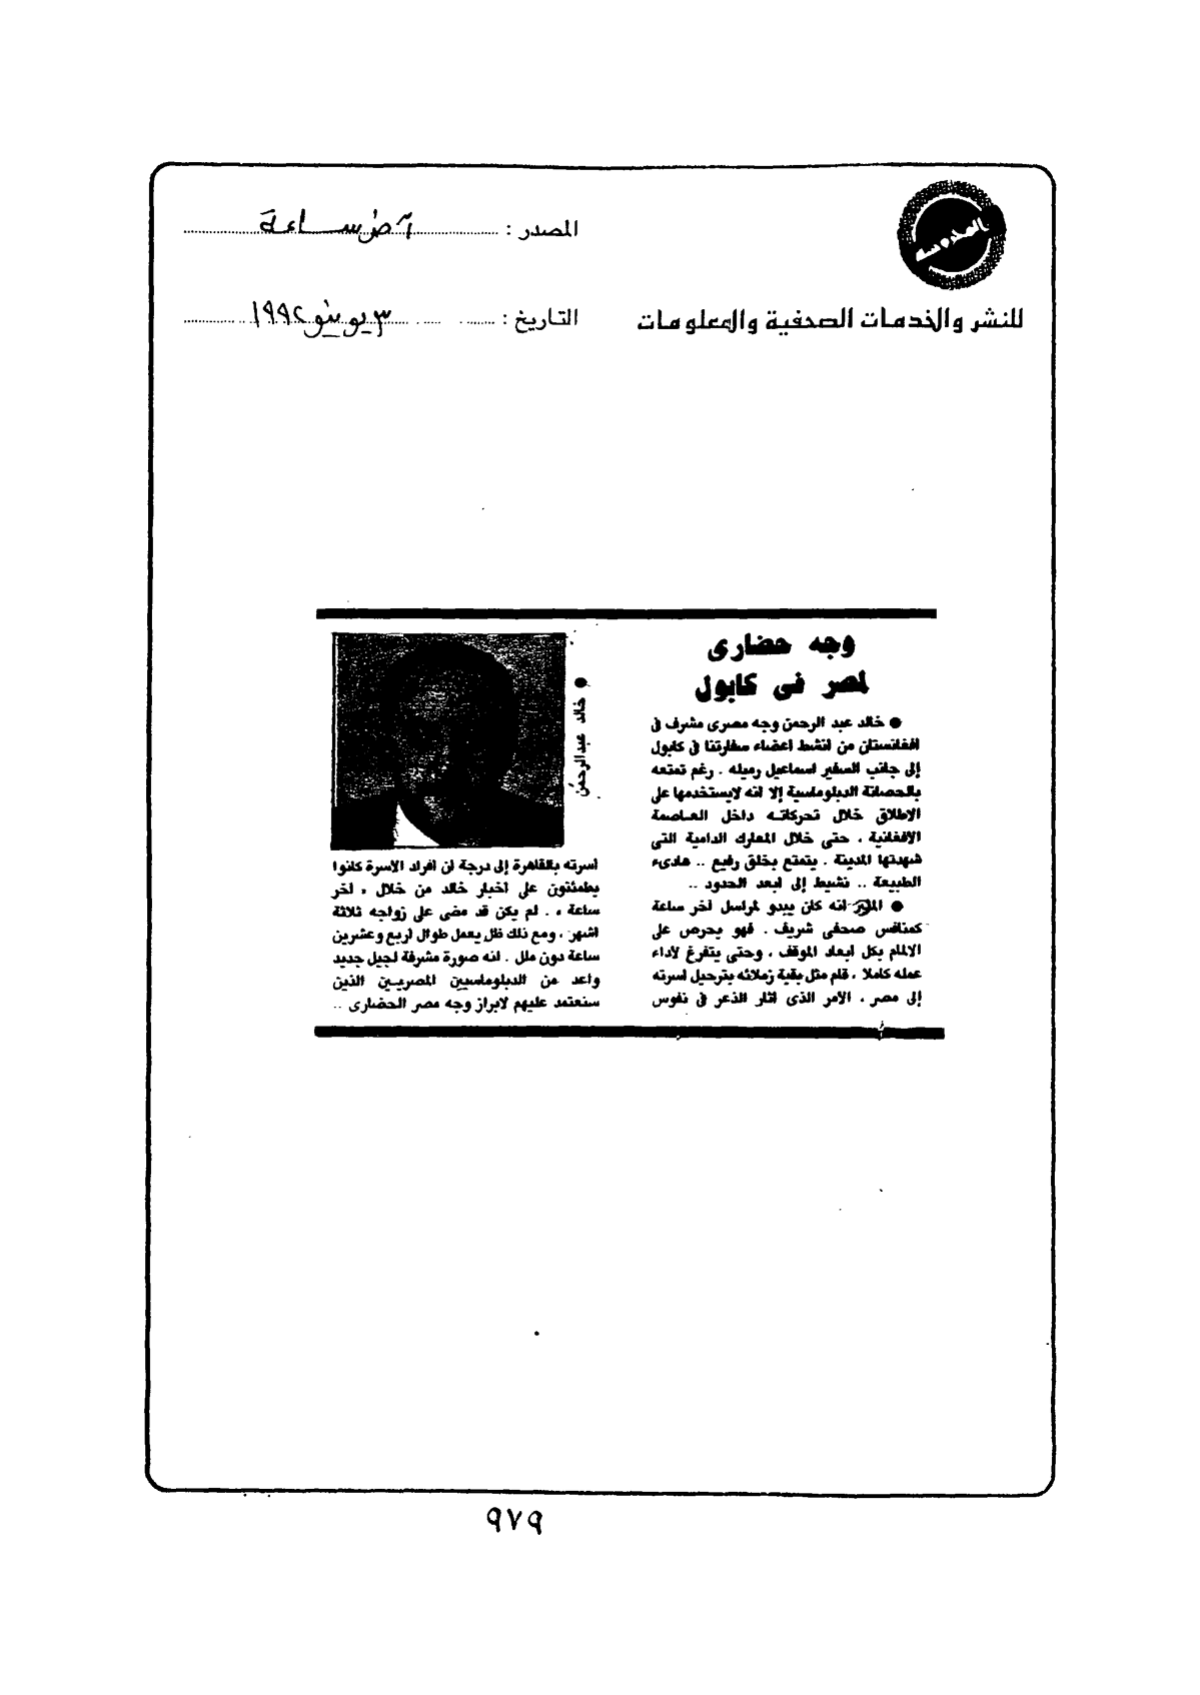 المدروسة
المصدر : آخر ساعة
للنشر والخدمات الصحفية والمعلومات
التاريخ : ٣ يونيو ١٩٩٢
وجه حضارى
لمصر فى كابول
● خالد عبد الرحمن وجه مصرى مشرف فى
افغانستان من انشط اعضاء سفارتنا فى كابول
إلى جانب السفير اسماعيل رميله . رغم تمتعه
بالحصانة الدبلوماسية إلا انه لايستخدمها على
الاطلاق خلال تحركاته داخل العاصمة
الافغانية ، حتى خلال المعارك الدامية التى
شهدتها المدينة . يتمتع بخلق رفيع .. هادىء
الطبيعة .. نشيط إلى ابعد الحدود ..
● المثير انه كان يبدو لمراسل آخر ساعة
كمنافس صحفى شريف . فهو يحرص على
الالمام بكل ابعاد الموقف ، وحتى يتفرغ لأداء
عمله كاملا ، قام مثل بقية زملائه بترحيل اسرته
إلى مصر ، الأمر الذى اثار الذعر فى نفوس
● خالد عبدالرحمن
اسرته بالقاهرة إلى درجة ان افراد الأسرة كانوا
يطمئنون على اخبار خالد من خلال ، آخر
ساعة ، . لم يكن قد مضى على زواجه ثلاثة
اشهر ، ومع ذلك ظل يعمل طوال اربع وعشرين
ساعة دون ملل . انه صورة مشرفة لجيل جديد
واعد من الدبلوماسيين المصريين الذين
سنعتمد عليهم لابراز وجه مصر الحضارى ..
٩٧٩